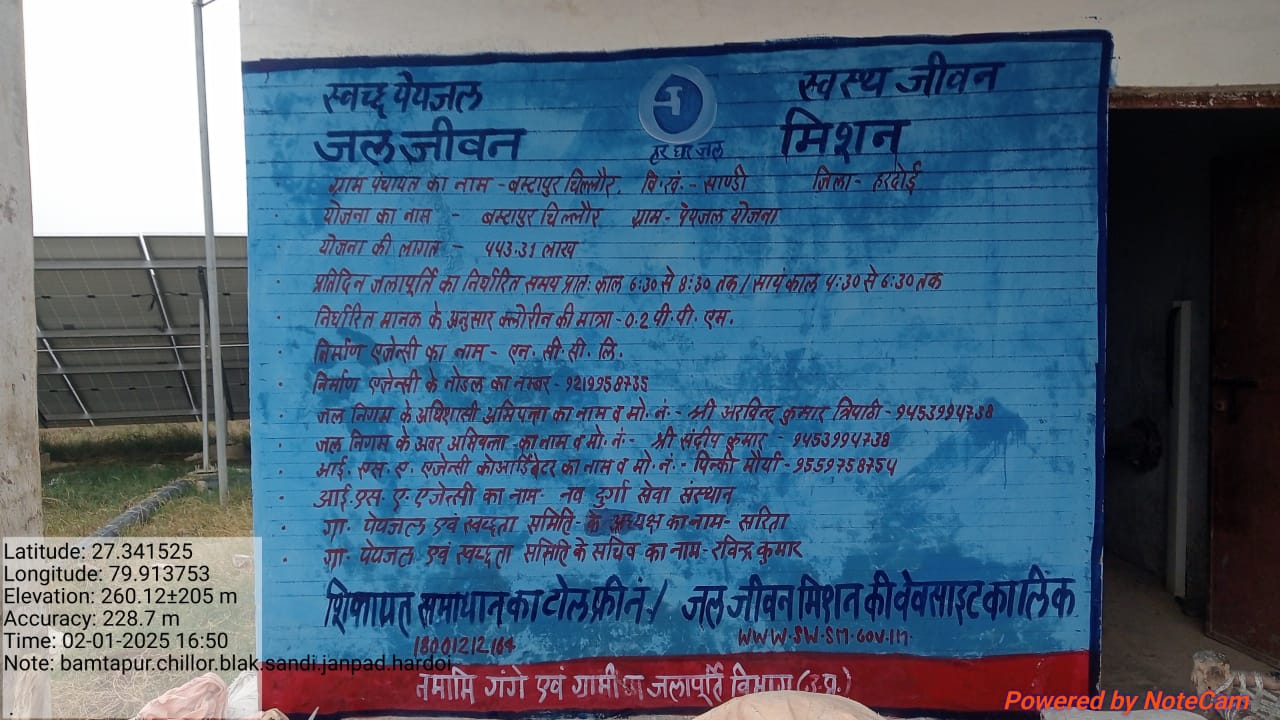 स्वच्छ पेयजल स्वस्थ जीवन
जल जीवन मिशन
हर घर जल
ग्राम पंचायत का नाम - बम्टापुर चिल्लौर, वि.खं. - साण्डी जिला - हरदोई
योजना का नाम - बम्टापुर चिल्लौर ग्राम - पेयजल योजना
योजना की लागत - ५५3.31 लाख
प्रतिदिन जलापूर्ति का निर्धारित समय प्रातः काल 6:30 से 8:30 तक / सायं काल ५:30 से 6:30 तक
निर्धारित मानक के अनुसार क्लोरीन की मात्रा - 0.2 पी. पी. एम.
निर्माण एजेन्सी का नाम - एन. सी. सी. लि.
निर्माण एजेन्सी के नोडल का नम्बर - 9219958735
जल निगम के अधिशाषी अभियन्ता का नाम व मो. नं. - श्री अरविन्द कुमार त्रिपाठी - 9453994738
जल निगम के अवर अभियन्ता का नाम व मो. नं. - श्री संदीप कुमार - 9453994738
आई. एस. ए. एजेन्सी कोआर्डिनेटर का नाम व मो. नं. - पिन्की मौर्या - 9559758754
आई.एस. ए. एजेन्सी का नाम - नव दुर्गा सेवा संस्थान
ग्रा. पेयजल एवं स्वच्छता समिति - के अध्यक्ष का नाम - सरिता
ग्रा. पेयजल एवं स्वच्छता समिति के सचिव का नाम - रविन्द्र कुमार
शिकायत समाधान का टोल फ्री नं. / जल जीवन मिशन की वेबसाइट का लिंक
18001212164 WWW.SW.SM.GOV.In.
नमामि गंगे एवं ग्रामीण जलापूर्ति विभाग (उ.प्र.)
Latitude: 27.341525
Longitude: 79.913753
Elevation: 260.12±205 m
Accuracy: 228.7 m
Time: 02-01-2025 16:50
Note: bamtapur.chillor.blak.sandi.janpad.hardoi
Powered by NoteCam